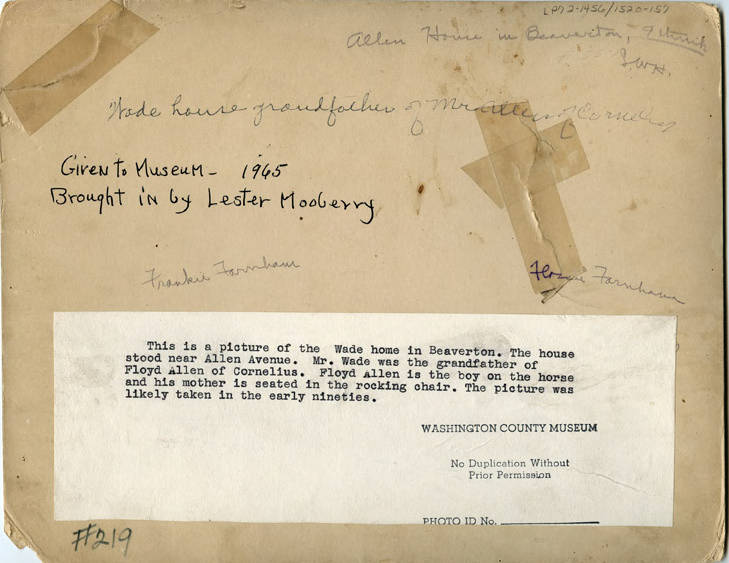 LP72-1456/1520-157
Allen House in Beaverton, I think
J.W.H.
Wade house grandfather of Mr Allen of Cornelius
Given to Museum - 1965
Brought in by Lester Mooberry
Frankie Farnham
Farnham
This is a picture of the Wade home in Beaverton. The house
stood near Allen Avenue. Mr. Wade was the grandfather of
Floyd Allen of Cornelius. Floyd Allen is the boy on the horse
and his mother is seated in the rocking chair. The picture was
likely taken in the early nineties.
WASHINGTON COUNTY MUSEUM
No Duplication Without
Prior Permission
PHOTO ID No.
#219